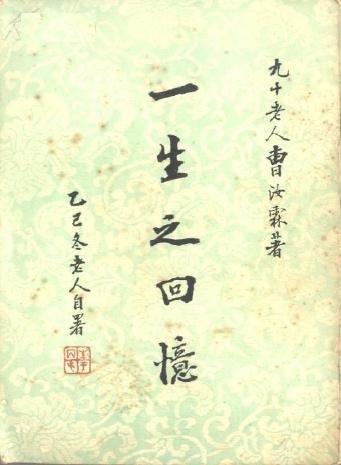 九十老人曹汝霖著
一生之回憶
乙巳冬老人自署